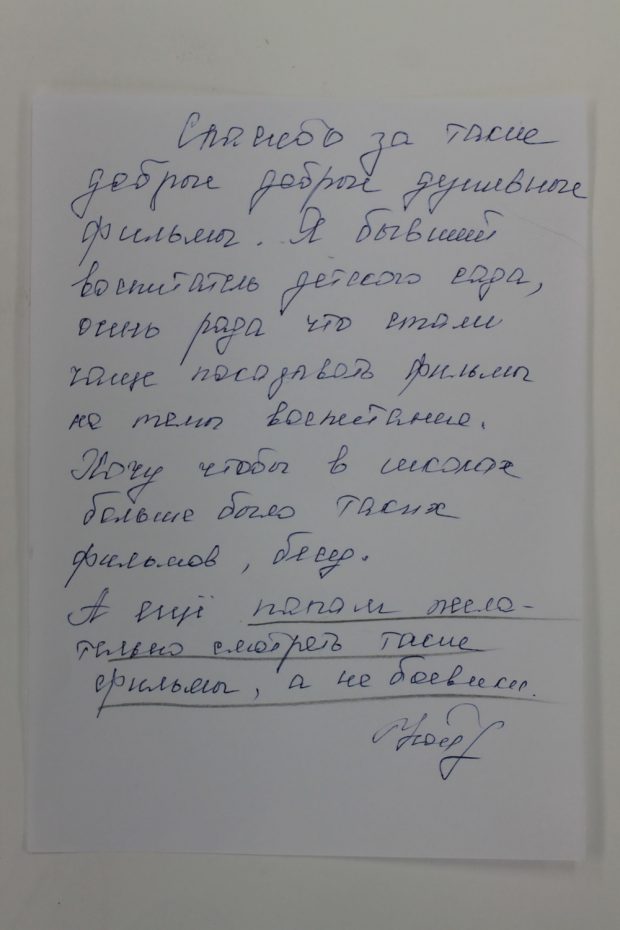 Спасибо за такие
добрые добрые душевные
фильмы. Я бывший
воспитатель детского сада,
очень рада что стали
чаще показывать фильмы
на темы воспитание.
Хочу чтобы в школах
больше было таких
фильмов, бесед.
А ещё папам жела-
тельно смотреть такие
фильмы, а не боевики.